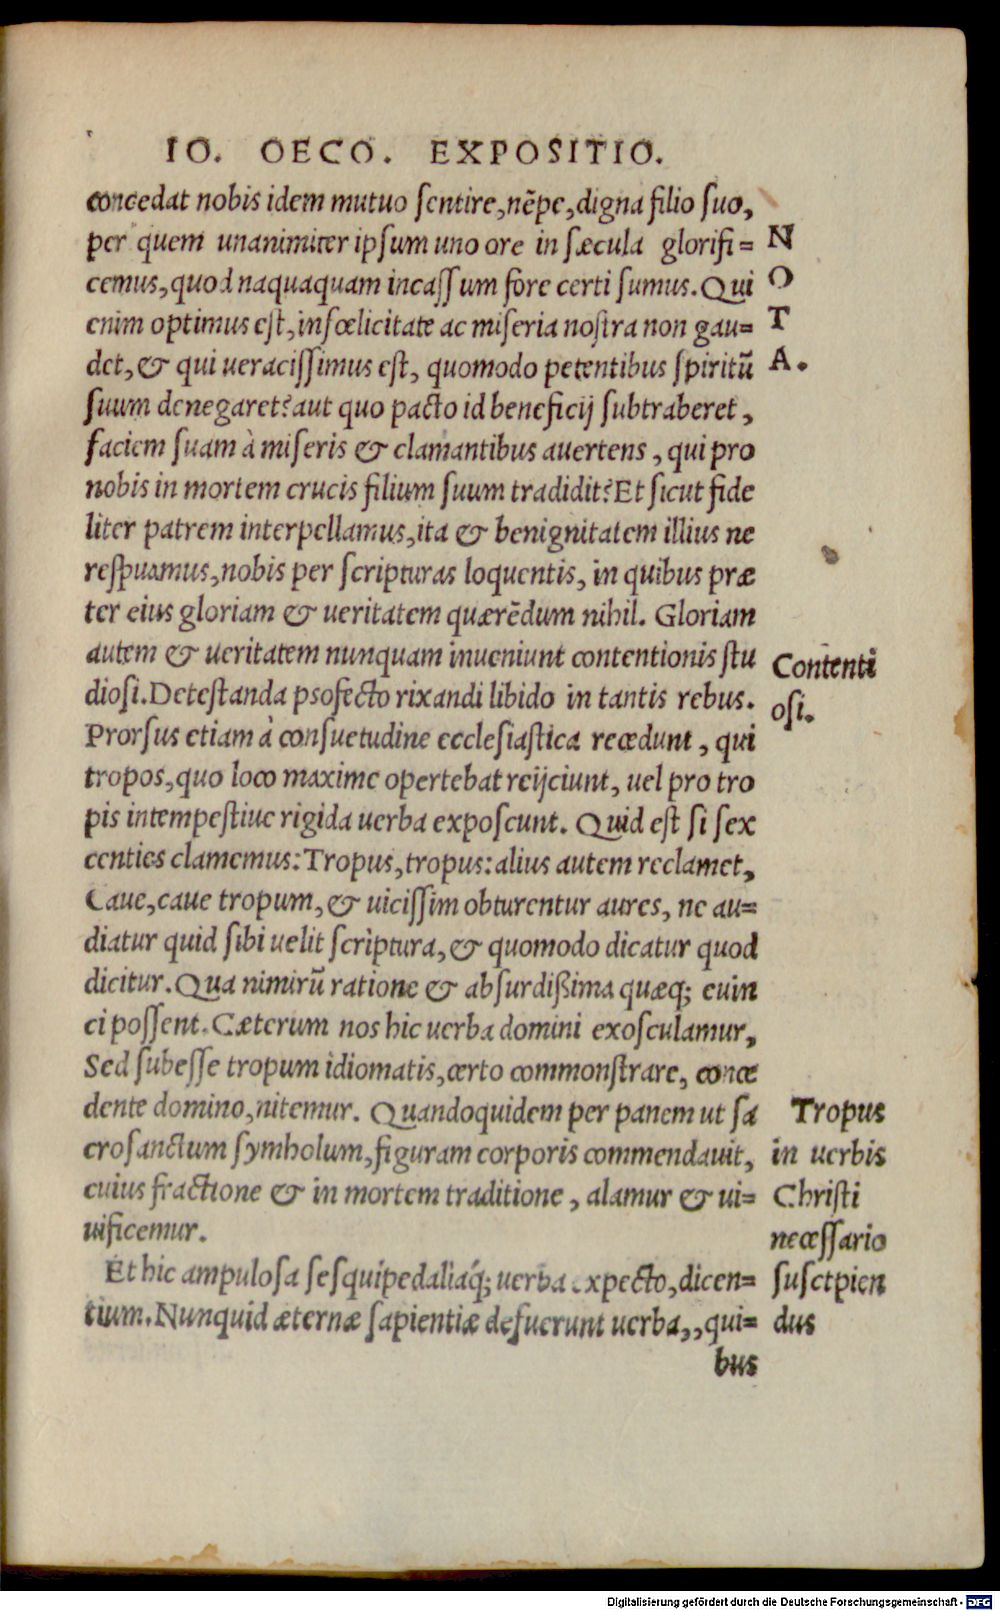 IO. OECO. EXPOSITIO.
concedat nobis idem mutuo ſentire, nēpe, digna filio ſuo,
per quem unanimiter ipſum uno ore in ſæcula glorifi=
cemus, quod naquaquam incaſſum fore certi ſumus. Qui
enim optimus eſt, infœlicitate ac miſeria noſtra non gau=
det, & qui ueraciſſimus eſt, quomodo petentibus ſpiritū
ſuum denegaret? aut quo pacto id beneficij ſubtraberet,
faciem ſuam à miſeris & clamantibus auertens, qui pro
nobis in mortem crucis filium ſuum tradidit? Et ſicut fide
liter patrem interpellamus, ita & benignitatem illius ne
reſpuamus, nobis per ſcripturas loquentis, in quibus præ
ter eius gloriam & ueritatem quærēdum nihil. Gloriam
autem & ueritatem nunquam inueniunt contentionis ſtu
dioſi. Deteſtanda psofecto rixandi libido in tantis rebus.
Prorſus etiam à conſuetudine eccleſiaſtica recedunt, qui
tropos, quo loco maxime opertebat reijciunt, uel pro tro
pis intempeſtiue rigida uerba expoſcunt. Quid eſt ſi ſex
centies clamemus: Tropus, tropus: alius autem reclamet,
Caue, caue tropum, & uiciſſim obturentur aures, ne au=
diatur quid ſibi uelit ſcriptura, & quomodo dicatur quod
dicitur. Qua nimirū ratione & abſurdißima quæq; euin
ci poſſent. Cæterum nos hic uerba domini exoſculamur,
Sed ſubeſſe tropum idiomatis, certo commonſtrare, conce
dente domino, nitemur. Quandoquidem per panem ut ſa
croſanctum ſymbolum, figuram corporis commendauit,
cuius fractione & in mortem traditione, alamur & ui=
uificemur.
Et hic ampuloſa ſeſquipedaliaq́; uerba expecto, dicen=
tium. Nunquid æternæ ſapientiæ defuerunt uerba,, qui=
bus
N
O
T
A.
Contenti
oſi.
Tropus
in uerbis
Chriſti
neceſſario
ſuſctpien
dus
Digitalisierung gefördert durch die Deutsche Forschungsgemeinschaft - DFG